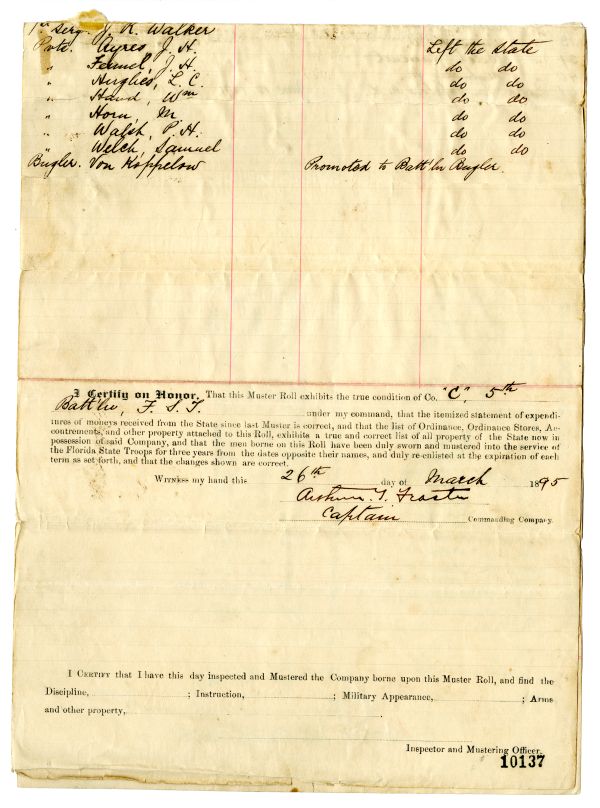 1st Serg. J. R. Walker
Pvte. Ayres, J. H. Left the State
" Fennel, J. H. do do
" Hughes, L. C. do do
" Hand, Wm do do
" Horn, M do do
" Walsh, P. H. do do
" Welch, Samuel do do
Bugler. Von Koppelow Promoted to Batt'ln Bugler.
I Certify on Honor, That this Muster Roll exhibits the true condition of Co. "C", 5th
Batt'ln, F. S. T. under my command, that the itemized statement of expendi-
tures of moneys received from the State since last Muster is correct, and that the list of Ordinance, Ordinance Stores, Ac-
contrements, and other property attached to this Roll, exhibits a true and correct list of all property of the State now in
possession of said Company, and that the men borne on this Roll have been duly sworn and mustered into the service of
the Florida State Troops for three years from the dates opposite their names, and duly re-enlisted at the expiration of each
term as set forth, and that the changes shown are correct.
Witness my hand this 26th day of March 1895
Arthur T.
Captain Commanding Company.
I Certify that I have this day inspected and Mustered the Company borne upon this Muster Roll, and find the
Discipline, ; Instruction, ; Military Appearance, ; Arms
and other property,
Inspector and Mustering Officer.
10137